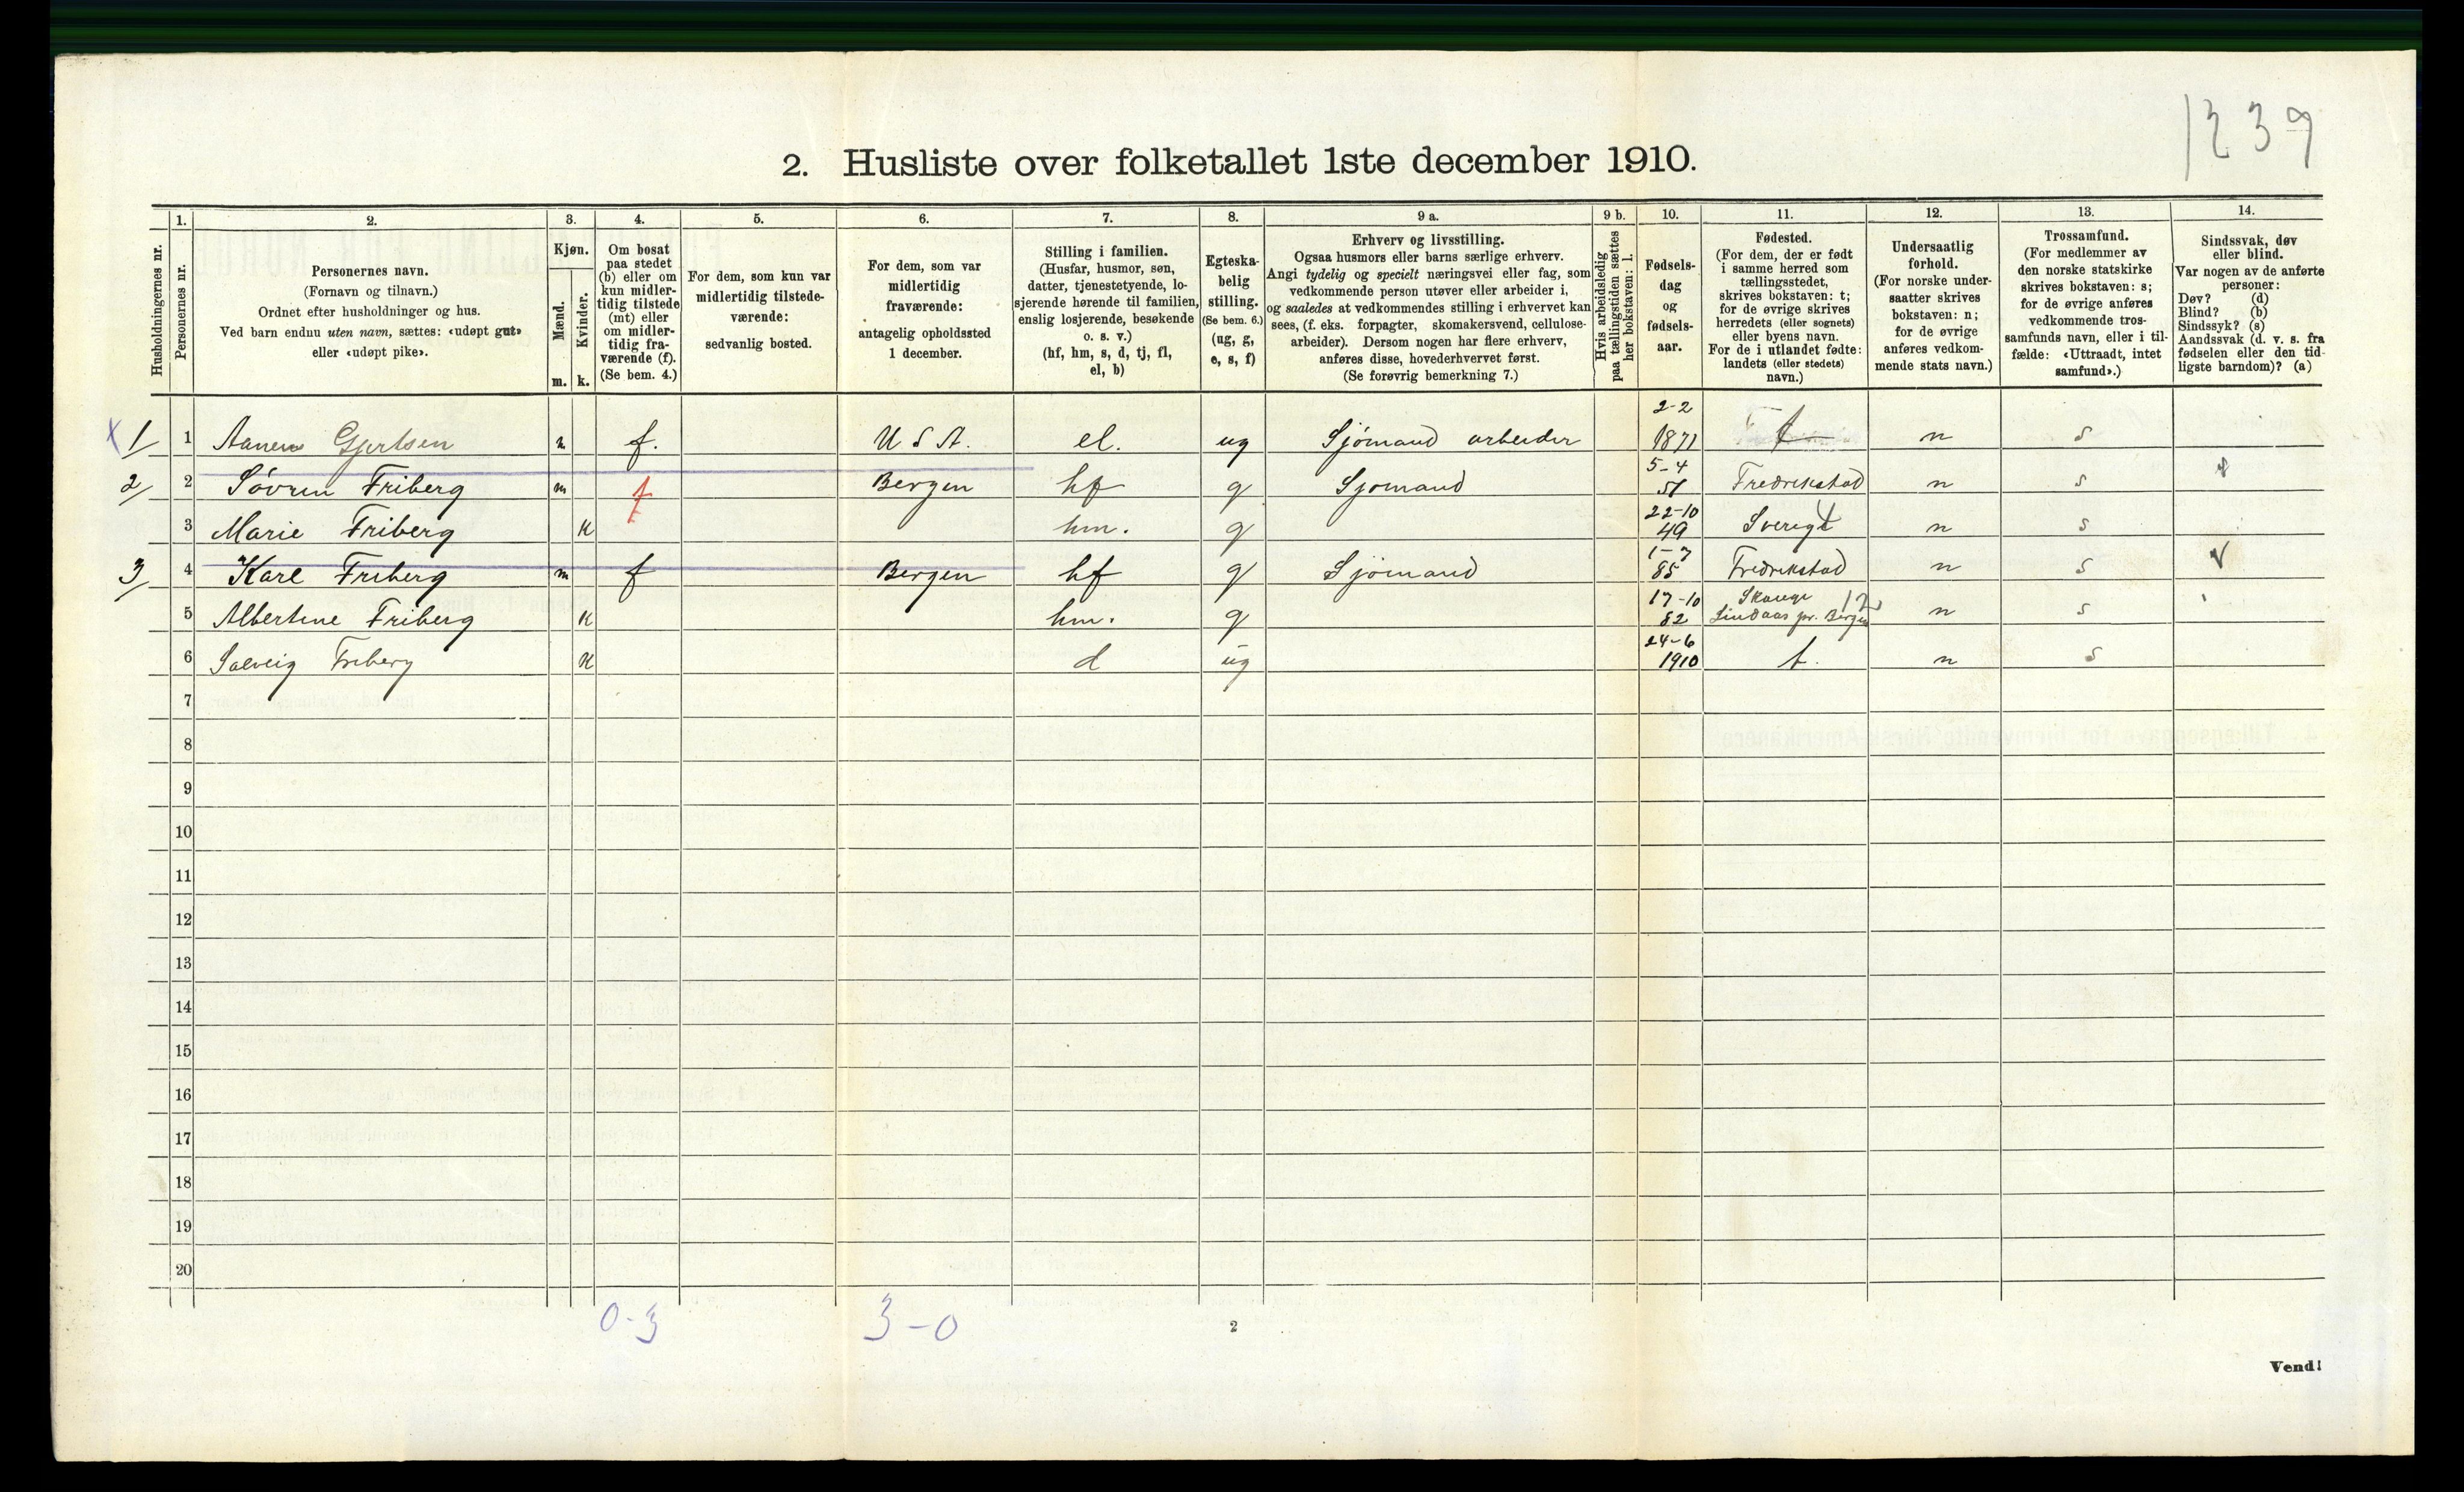 1239
2. Husliste over folketallet 1ste december 1910.
Husholdningernes nr.
1.
Personernes nr.
2.
Personernes navn.
(Fornavn og tilnavn.)
Ordnet efter husholdninger og hus.
Ved barn endnu uten navn, sættes: «udøpt gut»
eller «udøpt pike».
3.
Kjøn.
Mænd.
Kvinder.
m. k.
4.
Om bosat
paa stedet
(b) eller om
kun midler-
tidig tilstede
(mt) eller
om midler-
tidig fra-
værende (f).
(Se bem. 4.)
5.
For dem, som kun var
midlertidig tilstede-
værende:
sedvanlig bosted.
6.
For dem, som var
midlertidig
fraværende:
antagelig opholdssted
1 december.
7.
Stilling i familien.
(Husfar, husmor, søn,
datter, tjenestetyende, lo-
sjerende hørende til familien,
enslig losjerende, besøkende
o. s. v.)
(hf, hm, s, d, tj, fl,
el, b)
8.
Egteska-
belig
stilling.
(Se bem. 6.)
(ug, g,
e, s, f)
9 a.
Erhverv og livsstilling.
Ogsaa husmors eller barns særlige erhverv.
Angi tydelig og specielt næringsvei eller fag, som
vedkommende person utøver eller arbeider i,
og saaledes at vedkommendes stilling i erhvervet kan
sees, (f. eks. forpagter, skomakersvend, cellulose-
arbeider). Dersom nogen har flere erhverv,
anføres disse, hovederhvervet først.
(Se forøvrig bemerkning 7.)
9 b.
Hvis arbeidsledig
paa tællingstiden sættes
her bokstaven: l.
10.
Fødsels-
dag
og
fødsels-
aar.
11.
Fødested.
(For dem, der er født
i samme herred som
tællingsstedet,
skrives bokstaven: t;
for de øvrige skrives
herredets (eller sognets)
eller byens navn.
For de i utlandet fødte:
landets (eller stedets)
navn.)
12.
Undersaatlig
forhold.
(For norske under-
saatter skrives
bokstaven: n;
for de øvrige
anføres vedkom-
mende stats navn.)
13.
Trossamfund.
(For medlemmer av
den norske statskirke
skrives bokstaven: s;
for de øvrige anføres
vedkommende tros-
samfunds navn, eller i til-
fælde: «Uttraadt, intet
samfund».)
14.
Sindssvak, døv
eller blind.
Var nogen av de anførte
personer:
Døv? (d)
Blind? (b)
Sindssyk? (s)
Aandssvak (d. v. s. fra
fødselen eller den tid-
ligste barndom)? (a)
x 1 1 Gjertsen f. U S A. el. ug Sjömand arbeider 2-2 1871 t n s
2 2 Sövren Friberg m f Bergen hf g Sjömand 5-4 51 Fredrikstad n s
3 Marie Friberg K hm. g 22-10 49 Sverige n s
3 4 Karl Friberg m f Bergen hf g Sjömand 1-7 85 Fredrikstad n s
5 Albertine Friberg K hm. g 17-10 82 Lindaas pr. Bergen 12 n s
6 Solveig Friberg K d ug 24-6 1910 t. n s
7
8
9
10
11
12
13
14
15
16
17
18
19
20
0-3 3-0
2
Vend!